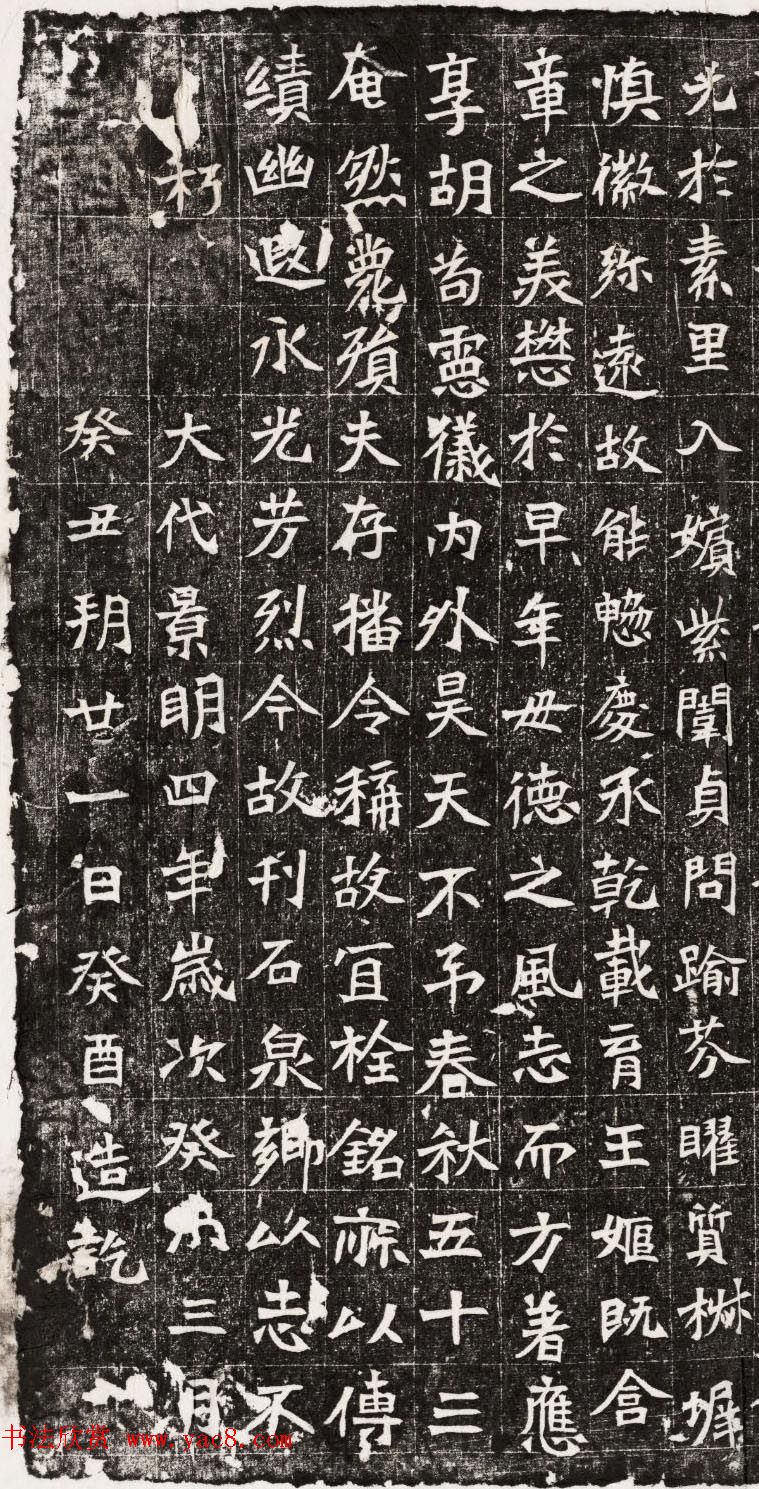 光於素里入嬪紫闈貞問踰芬曜質椒墀
慎徽弥遠故能愍慶承乾載育王姬既含
章之美懋於早年毋德之風志而方著應
享胡耇靈儀內外昊天不弔春秋五十三
奄然薨殞夫存播令稱故宜栓銘亦以傳
績幽遐永光芳烈今故刊石泉鄉以志不
朽 大代景明四年歲次癸三月
癸丑朔廿一日癸酉造訖
书法欣赏 www.yac8.com